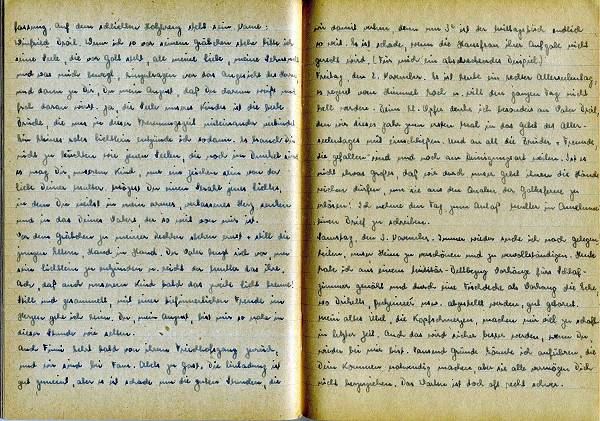 fassung. Auf dem schlichten Holzkreuz steht sein Name:
Winfried Dröl. Wenn ich so vor seinem Gräbchen stehe bitte ich
seine Seele, die vor Gott steht, all meine Liebe, meine Sehnsucht
und was mich bewegt, hinzutragen vor das Angesicht des Herrn
und dann zu Dir, Du mein August, daß Du darum weißt und
froh daran wirst. Ja, die Seele unseres Kindes ist die feste
Brücke, die uns in dieser Trennungszeit miteinander verbindet.
Ein kleines rotes Lichtlein entzünde ich sodann. Es braucht Dir
nicht zu leuchten wie jenen Seelen, die noch im Dunkel sind
es mag Dir, unserem Kind, nur ein Zeichen sein von der
Liebe Deiner Mutter. Mögest Du einen Strahl jenes Lichtes,
in dem Du weilst in mein armes, verlassenes Herz senken
und in das Deines Vaters der so weit von mir ist.
Vor dem Gräbchen zu meiner Rechten stehen ernst u. still die
jungen Eltern, Hand in Hand. Der Vater beugt sich vor, um
sein Lichtlein zu entzünden u. nicht der Mutter das ihre.
Ach, daß auch unserem Kind bald das zweite Licht brenne!
Still und gesammelt, mit einer tiefinnerlichen Freude im
Herzen gehe ich heim. Du, mein August, bist mir so nahe in
dieser Stunde wie selten.
Auch Finni kehrt bald von ihrem Friedhofsgang zurück,
und wir sind bei Fam. Abels zu Gast. Die Einladung ist
gut gemeint, aber es ist schade um die guten Stunden, die
wir damit verlieren, denn um 3° ist der Mittagstisch endlich
so weit. Es ist schade, wenn die Hausfrau ihrer Aufgabe nicht
gerecht wird. (Für mich ein abschreckendes Beispiel!)
Freitag, den 2. November. Es ist heute ein rechter Allerseelentag,
es regnet vom Himmel hoch u. will den ganzen Tag nicht
hell werden. Beim hl. Opfer denke ich besonders an Vater Dröl,
den wir dieses Jahr zum ersten Mal in das Gebet des Aller-
seelentages mit einschließen. Und an all die Brüder u. Freunde,
die gefallen sind und noch am Reinigungsort weilen. Ist es
nicht etwas Großes, daß wir durch unser Gebet ihnen die Hände
reichen dürfen, um sie aus den Qualen der Gottesferne zu
erlösen! Ich nehme den Tag zum Anlaß Mutter in Anrelmenn
einen Brief zu schreiben.
Samstag, den 3. November. Immer wieder suche ich nach Gelegen-
heiten, unser Heim zu verschönen und zu vervollständigen. Heute
habe ich aus einem Militär-Bettbezug Vorhänge fürs Schlaf-
zimmer genäht und durch eine Tischdecke als Vorhang die Ecke,
wo Eicheln, Putzeimer usw. abgestellt werden, gut getarnt.
Mein altes Übel, die Kopfschmerzen, machen mir viel zu schaffen
in letzter Zeit. Auch das wird sicher besser werden, wenn Du
wieder bei mir bist. Tausend Gründe könnte ich anführen, die
Dein Kommen notwendig machen, aber sie alle vermögen Dich
nicht herzuziehen. Das Warten ist doch oft recht schwer.